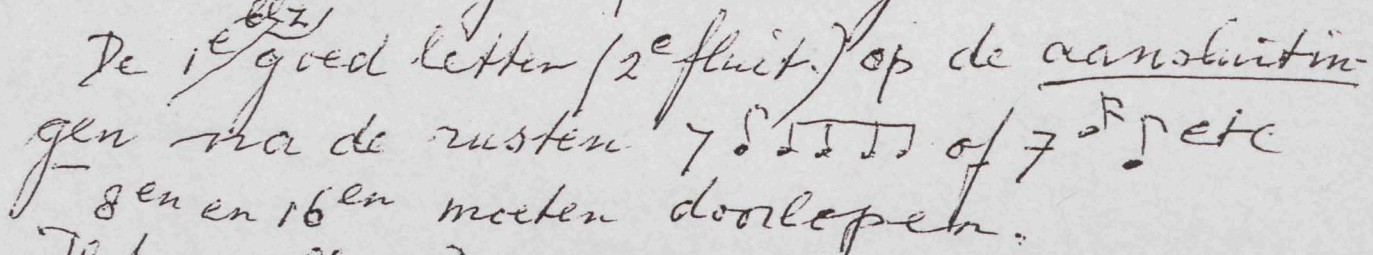 De 1e blz goed letten (2e fluit.) op de aansluitin-
gen na de rusten 7 ♪ ♫♫ of 7 ♪ ♪ etc
8en en 16en moeten doorlopen.